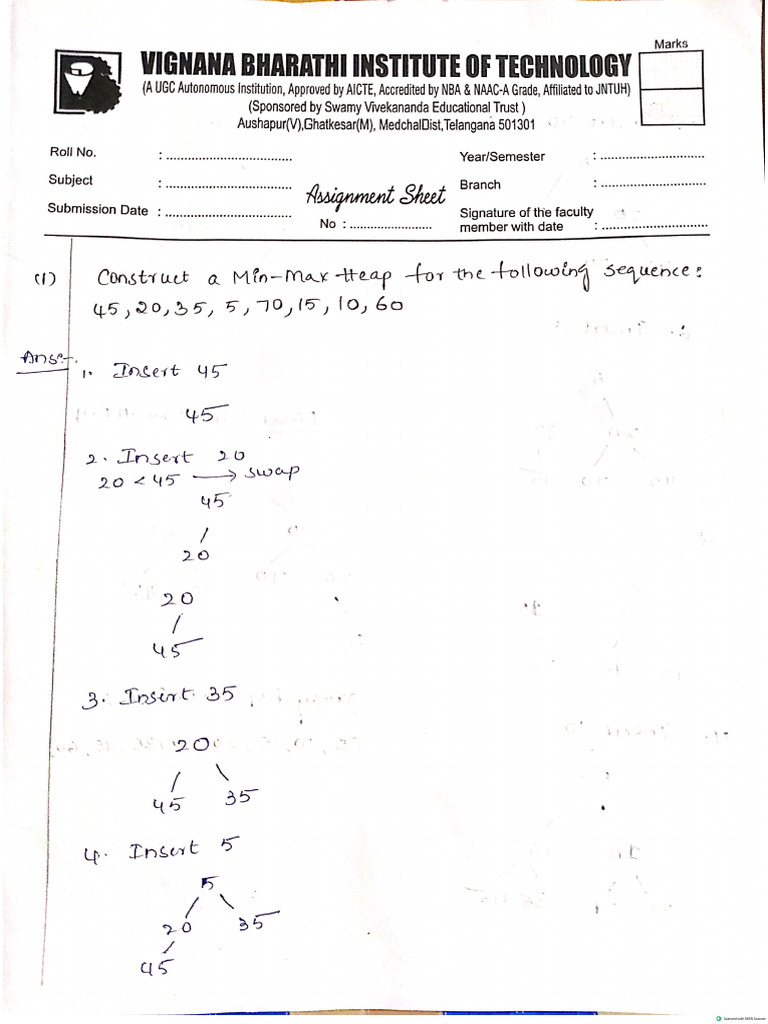 Marks
VIGNANA BHARATHI INSTITUTE OF TECHNOLOGY
(A UGC Autonomous Institution, Approved by AICTE, Accredited by NBA & NAAC-A Grade, Affiliated to JNTUH)
(Sponsored by Swamy Vivekananda Educational Trust )
Aushapur(V),Ghatkesar(M), MedchalDist,Telangana 501301
Roll No. : ................................
Year/Semester : ...........................
Subject : ................................
Assignment Sheet
Branch : ...........................
Submission Date : ................................
No : ........................
Signature of the faculty
member with date : ...........................
(1) Construct a Min-Max Heap for the following sequence:
45, 20, 35, 5, 70, 15, 10, 60
Ans:-
1. Insert 45
45
2. Insert 20
20 < 45 → swap
45
20
20
45
3. Insert 35
20
45 35
4. Insert 5
5
20 35
45
Scanned with OKEN Scanner